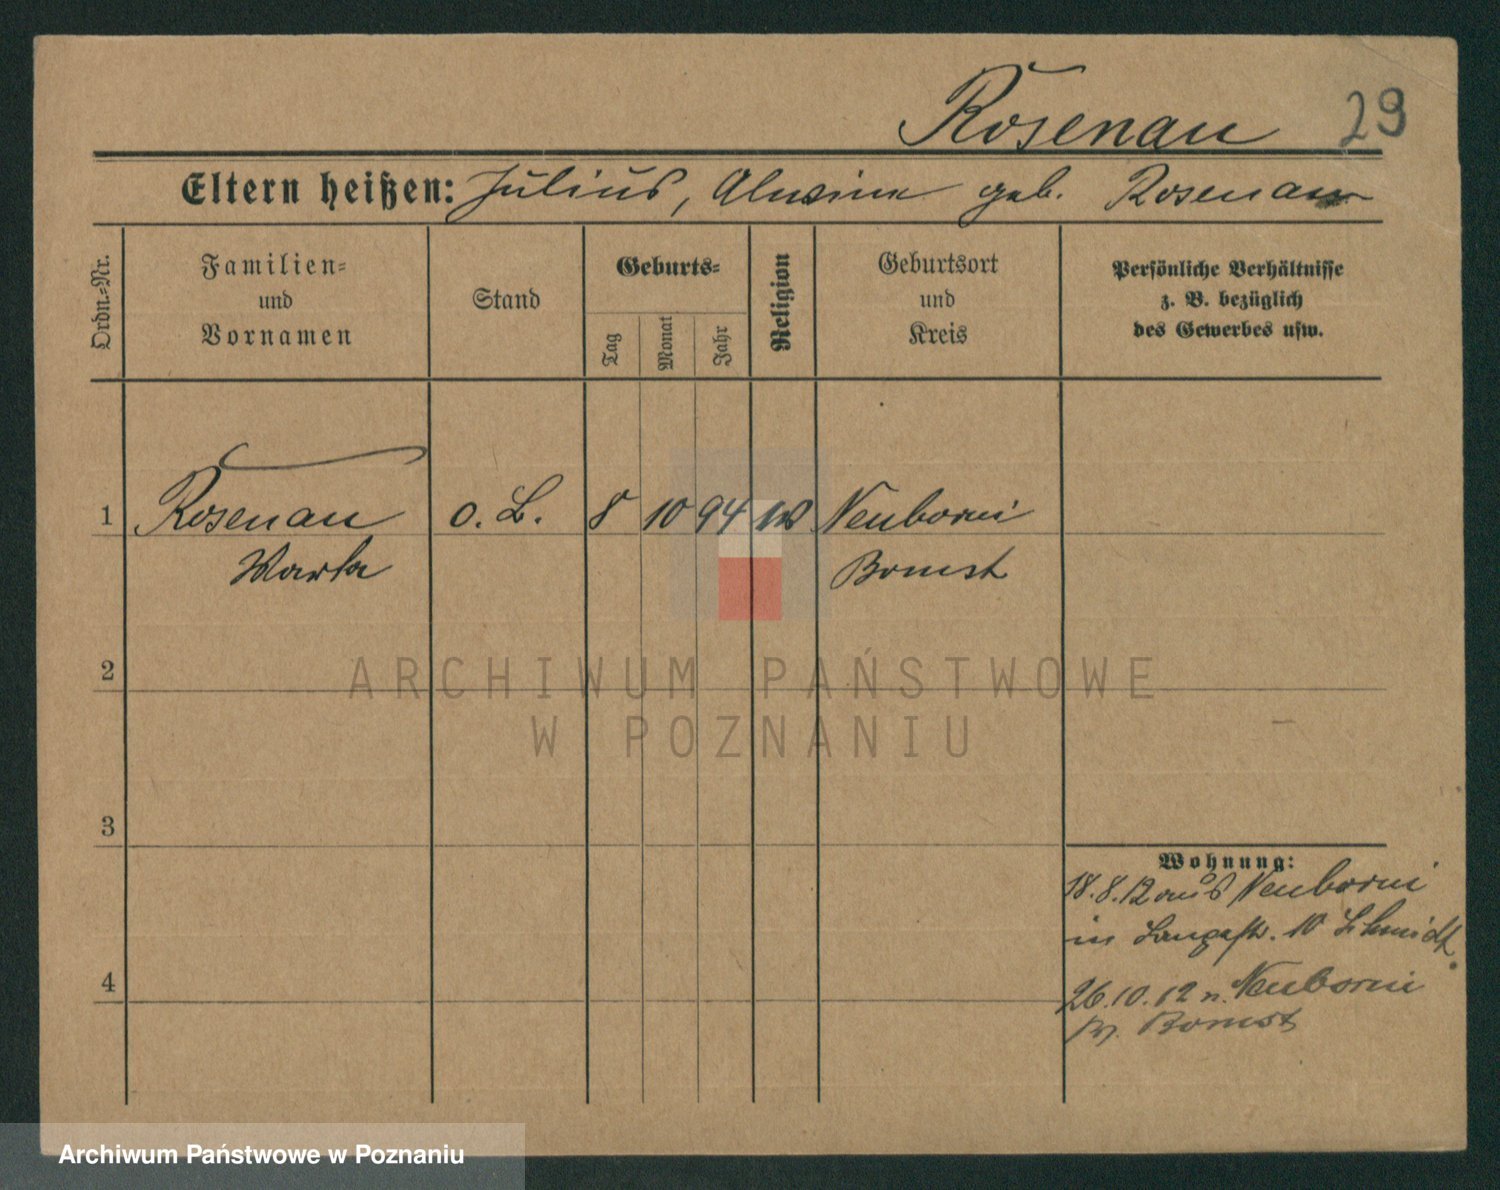 Rosenau 29
Eltern heißen: Julius, Alwine geb. Rosenau
Ordn.=Nr.
Familien=
und
Vornamen
Stand
Geburts=
Tag
Monat
Jahr
Religion
Geburtsort
und
Kreis
Persönliche Verhältnisse
z. B. bezüglich
des Gewerbes usw.
1 Rosenau o. B. 8 10 94 Neuborui
Bomst
2
ARCHIWUM PAŃSTWOWE
W POZNANIU
3
Wohnung:
18.8.12 aus Neuborui
in Langestr. 10 Schmidt.
4
26.10.12 n. Neuborui
Bomst
Archiwum Państwowe w Poznaniu